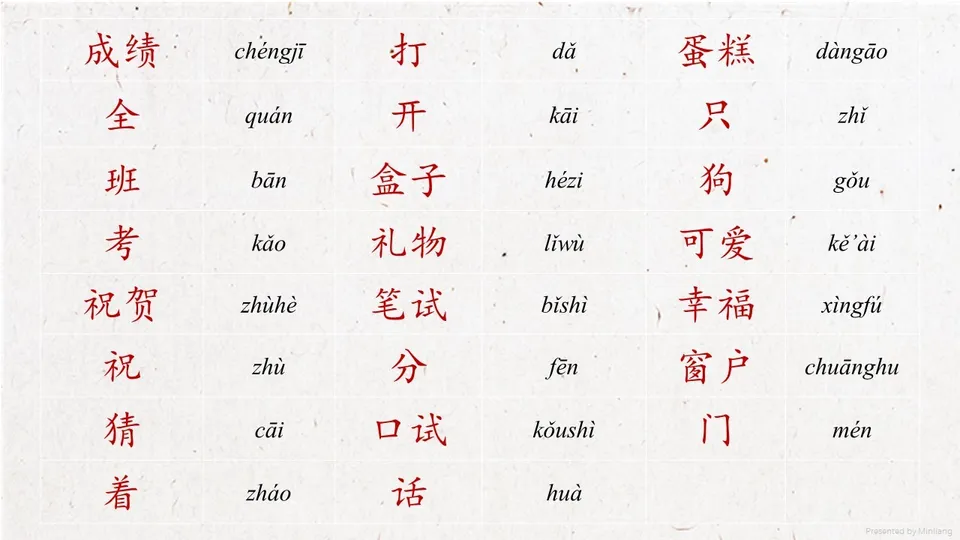 成绩 chéngjī 打 dǎ 蛋糕 dàngāo
全 quán 开 kāi 只 zhǐ
班 bān 盒子 hézi 狗 gǒu
考 kǎo 礼物 lǐwù 可爱 kě’ài
祝贺 zhùhè 笔试 bǐshì 幸福 xìngfú
祝 zhù 分 fēn 窗户 chuānghu
猜 cāi 口试 kǒushì 门 mén
着 zháo 话 huà
Presented by Minliang